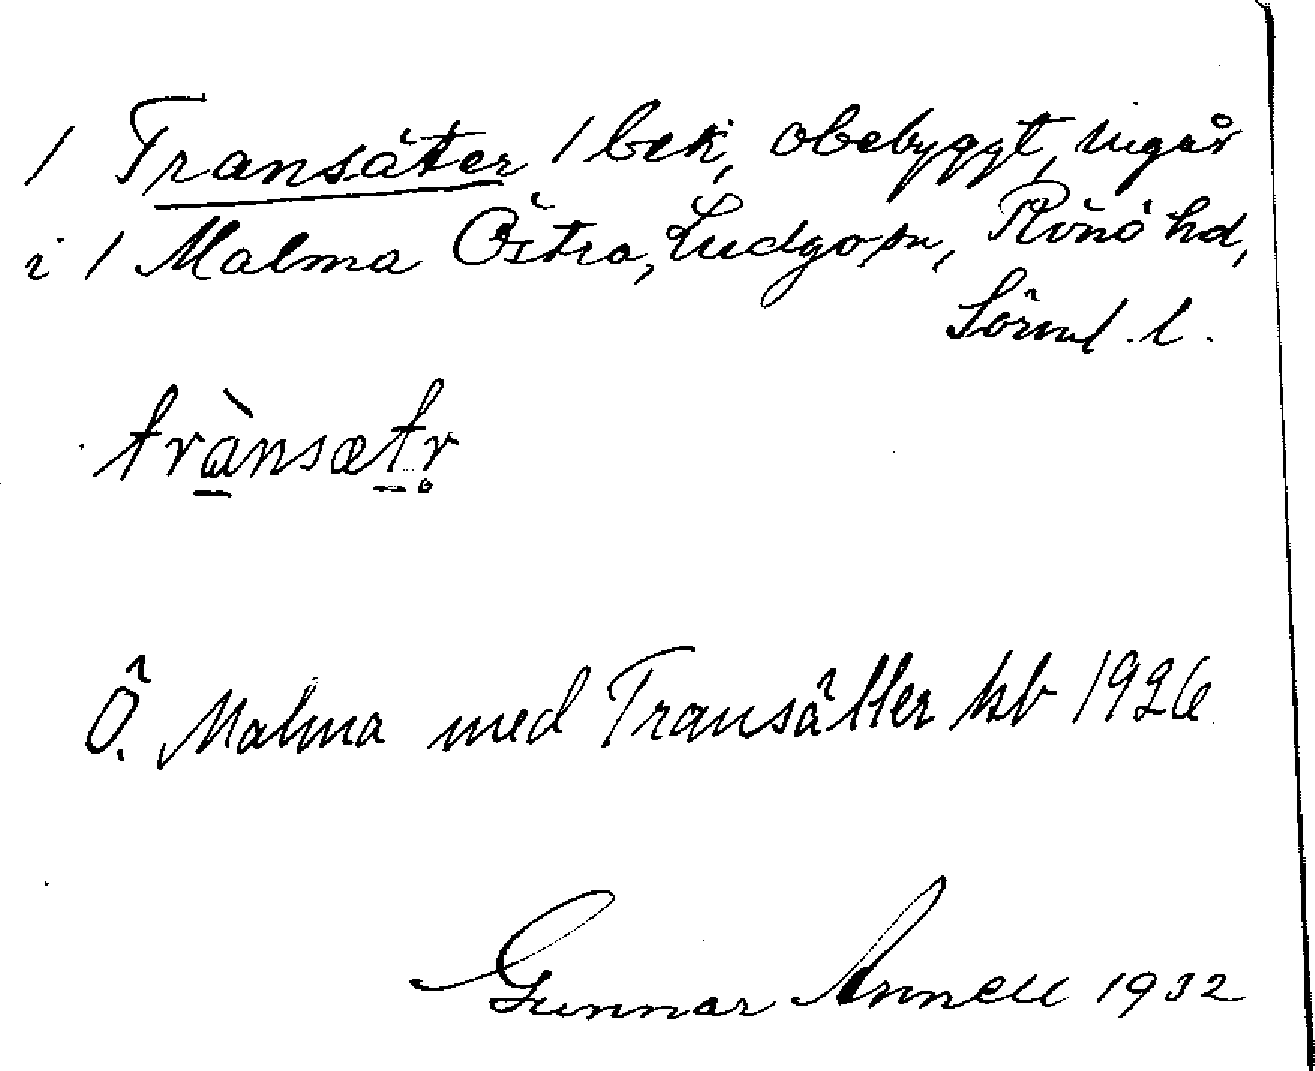 / Transäter / bek, obebyggt, ingår
i / Malma Östra, Ludgo sn, Rönö hd,
Sörml. l.
trànsætr̥
Ö. Malma med Transätter kb 1926
Gunnar Annell 1932